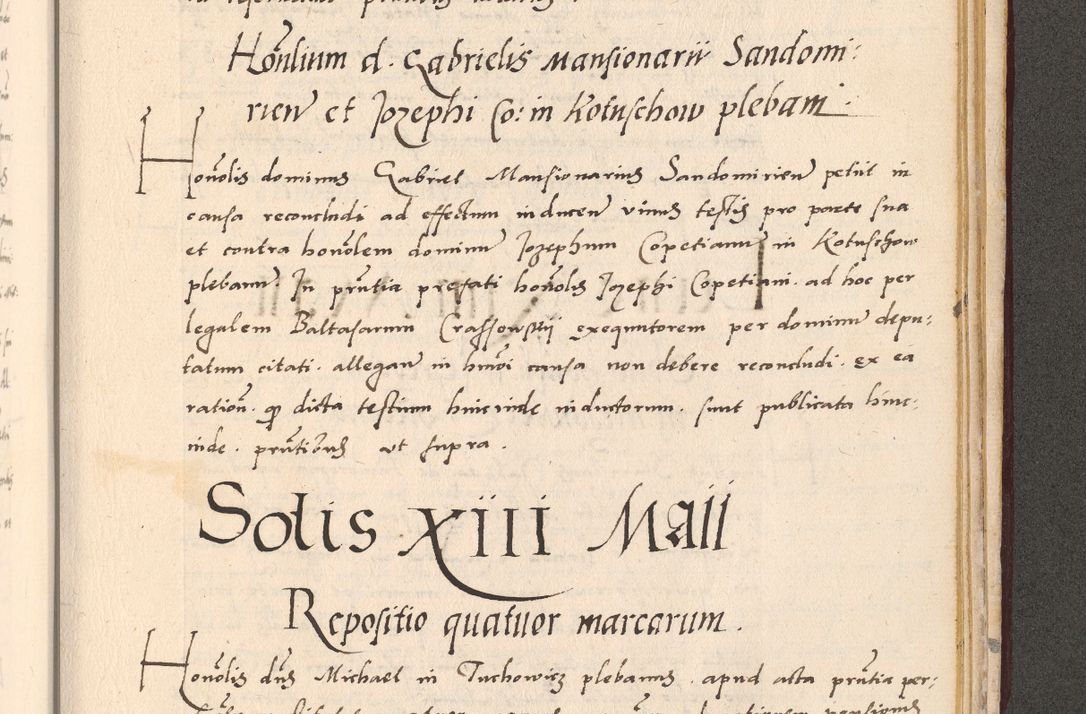 Honlium d. Gabrielis Mansionarii Sandomi:
rien et Jozephi Co: in Kotuschow plebani.
Honolis dominus Gabriel Mansionarius Sandomirien petiit in
causa reconcludi ad effectum inducen unius testis pro parte sua
et contra honolem dominu Jozephum Copetianu in Kotuschow
plebanu. In pntia prefati honolis Jozephi Copetiani. ad hoc per
legalem Baltasarum exequutorem per dominu depu:
tatum citati. allegan in hmoi causa non debere reconcludi. ex ea
ration. qp dicta testium hinc inde inductorum. sunt publicata hinc:
inde. pntibus ut supra.
Solis XIII Maii
Repositio quatuor marcarum.
Honolis dns Michael in Tuchowicz plebanus. apud acta pntia per: